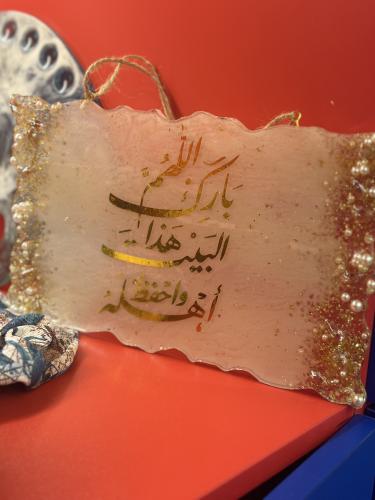 اللَّهُمَّ
بَارِك
هَذَا البَيْت
وَاحْفَظْ
أَهْلَهُ